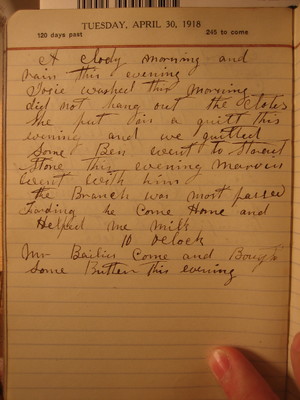 TUESDAY, APRIL 30, 1918
120 days past
245 to come
A clody morning and
rain this evening
Josie washed this morning
did not hang out the clotes
She put in a quilt this
evening and we quilted
Some Ben went to
Store this evening Marvin
went with him
the Branch was most passed
Fording he Come Home and
Helped me Milk
10 Oclock
Mr Bailies Come and Bough
Some Butter this evening